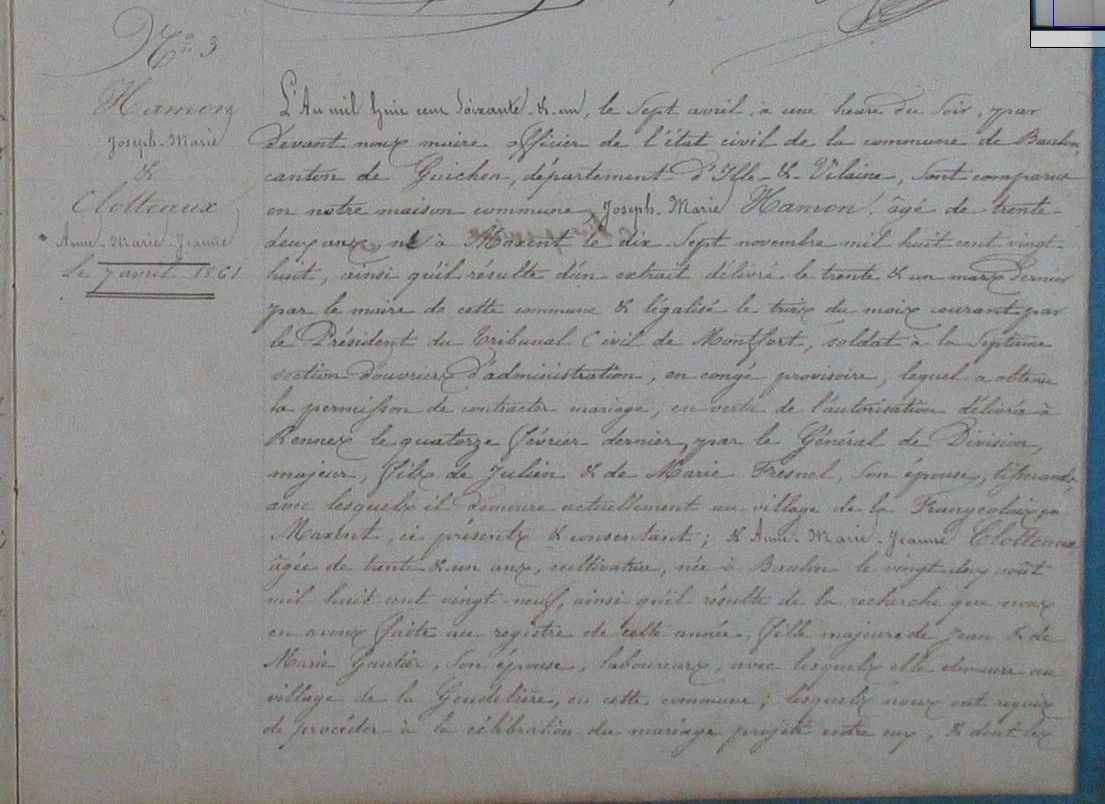 N° 3
Hamon
Joseph-Marie
&
Clotteaux
Anne-Marie-Jeanne
le 7 avril 1861
L'An mil huit cent soixante-&-un, le sept avril, à une heure du soir, par
devant nous maire officier de l'état civil de la commune de Baulon,
canton de Guichen, département d'Ille-&-Vilaine, sont comparus
en notre maison commune, Joseph-Marie Hamon, âgé de trente-
deux ans né à Maxent le dix-sept novembre mil huit cent vingt-
huit, ainsi qu'il résulte d'un extrait délivré le trente & un mars dernier
par le maire de cette commune & légalisé le trois du mois courant par
le Président du Tribunal Civil de Montfort, soldat à la septième
section d'ouvriers d'administration, en congé provisoire, lequel a obtenu
la permission de contracter mariage, en vertu de l'autorisation délivrée à
Rennes le quatorze février dernier, par le Général de Division,
majeur, fils de Julien & de Marie Fresnel, son épouse, tisserands,
avec lesquels il demeure actuellement au village de la en
Maxent, ci présents & consentant; & Anne-Marie-Jeanne Clotteaux
âgée de trente & un ans, cultivatrice, née à Baulon le vingt deux août
mil huit cent vingt-neuf, ainsi qu'il résulte de la recherche que nous
en avons faite au registre de cette année, fille majeure de Jean & de
Marie Gautier, son épouse, laboureurs, avec lesquels elle demeure au
village de la Goudelière, en cette commune; lesquels nous ont requis
de procéder à la célébration du mariage projeté entre eux, & dont les